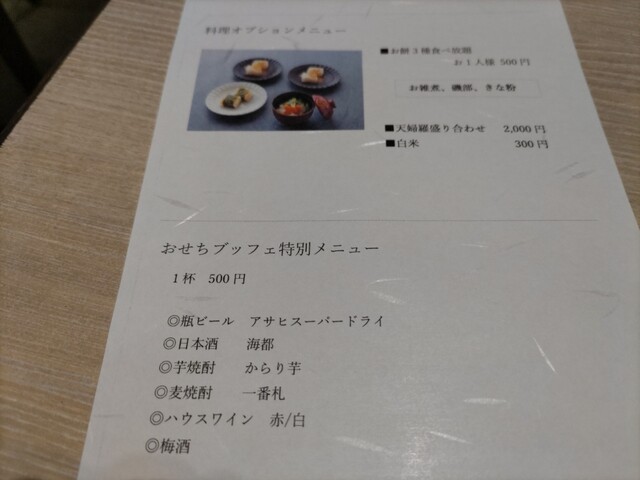 料理オプションメニュー
■お餅3種食べ放題
お1人様 500円
お雑煮、磯部、きな粉
■天婦羅盛り合わせ 2,000円
■白米 300円
おせちブッフェ特別メニュー
1杯 500円
◎瓶ビール アサヒスーパードライ
◎日本酒 海都
◎芋焼酎 からり芋
◎麦焼酎 一番札
◎ハウスワイン 赤/白
◎梅酒